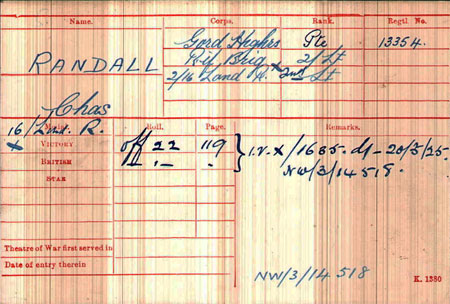 Name. Corps. Rank. Regtl. No.
Gord Highrs Pte 13354.
RANDALL Rif. Brig 2/Lt
2/16 Lond R. x 2nd Lt
Chas
16/Lon. R. Roll. Page. Remarks.
x VICTORY off 22 119 } I.V. x/1685. d/- 20/3/25.
BRITISH -"- -"- NW/3/14518.
STAR
Theatre of War first served in
Date of entry therein
NW/3/14518
K. 1380